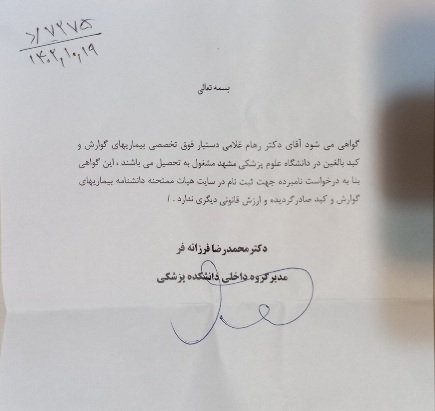 ۷۲۷۵/د
۱۴۰۲,۱۰,۱۹
بسمه تعالی
گواهی می شود آقای دکتر رهام غلامی دستیار فوق تخصصی بیماریهای گوارش و
کبد بالغین در دانشگاه علوم پزشکی مشهد مشغول به تحصیل می باشند ، این گواهی
بنا به درخواست نامبرده جهت ثبت نام در سایت هیات ممتحنه دانشنامه بیماریهای
گوارش و کبد صادر گردیده و ارزش قانونی دیگری ندارد . /
دکتر محمدرضا فرزانه فر
مدیر گروه داخلی دانشکده پزشکی